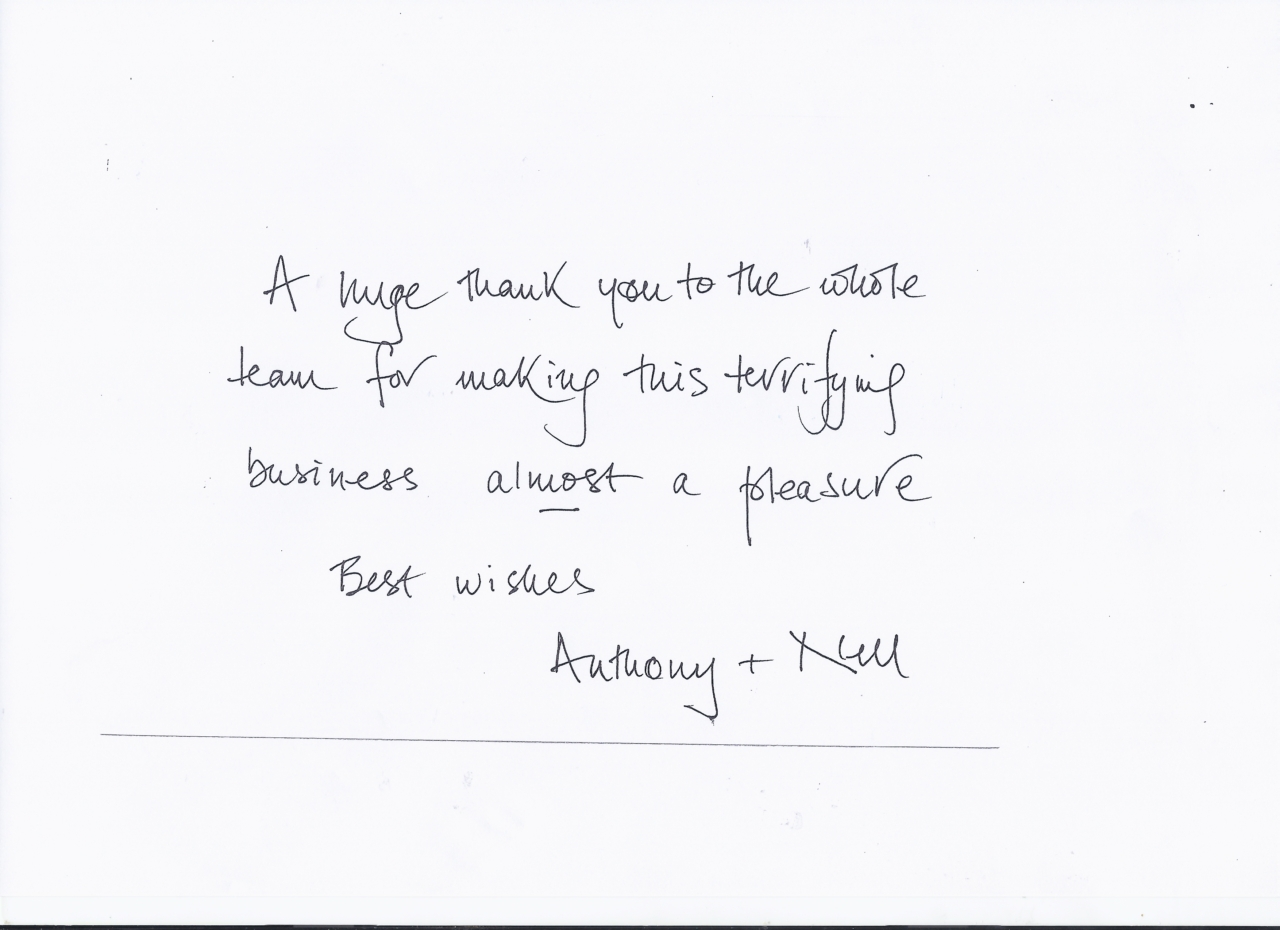 A huge thank you to the whole
team for making this terrifying
business almost a pleasure
Best wishes
Anthony + Nell